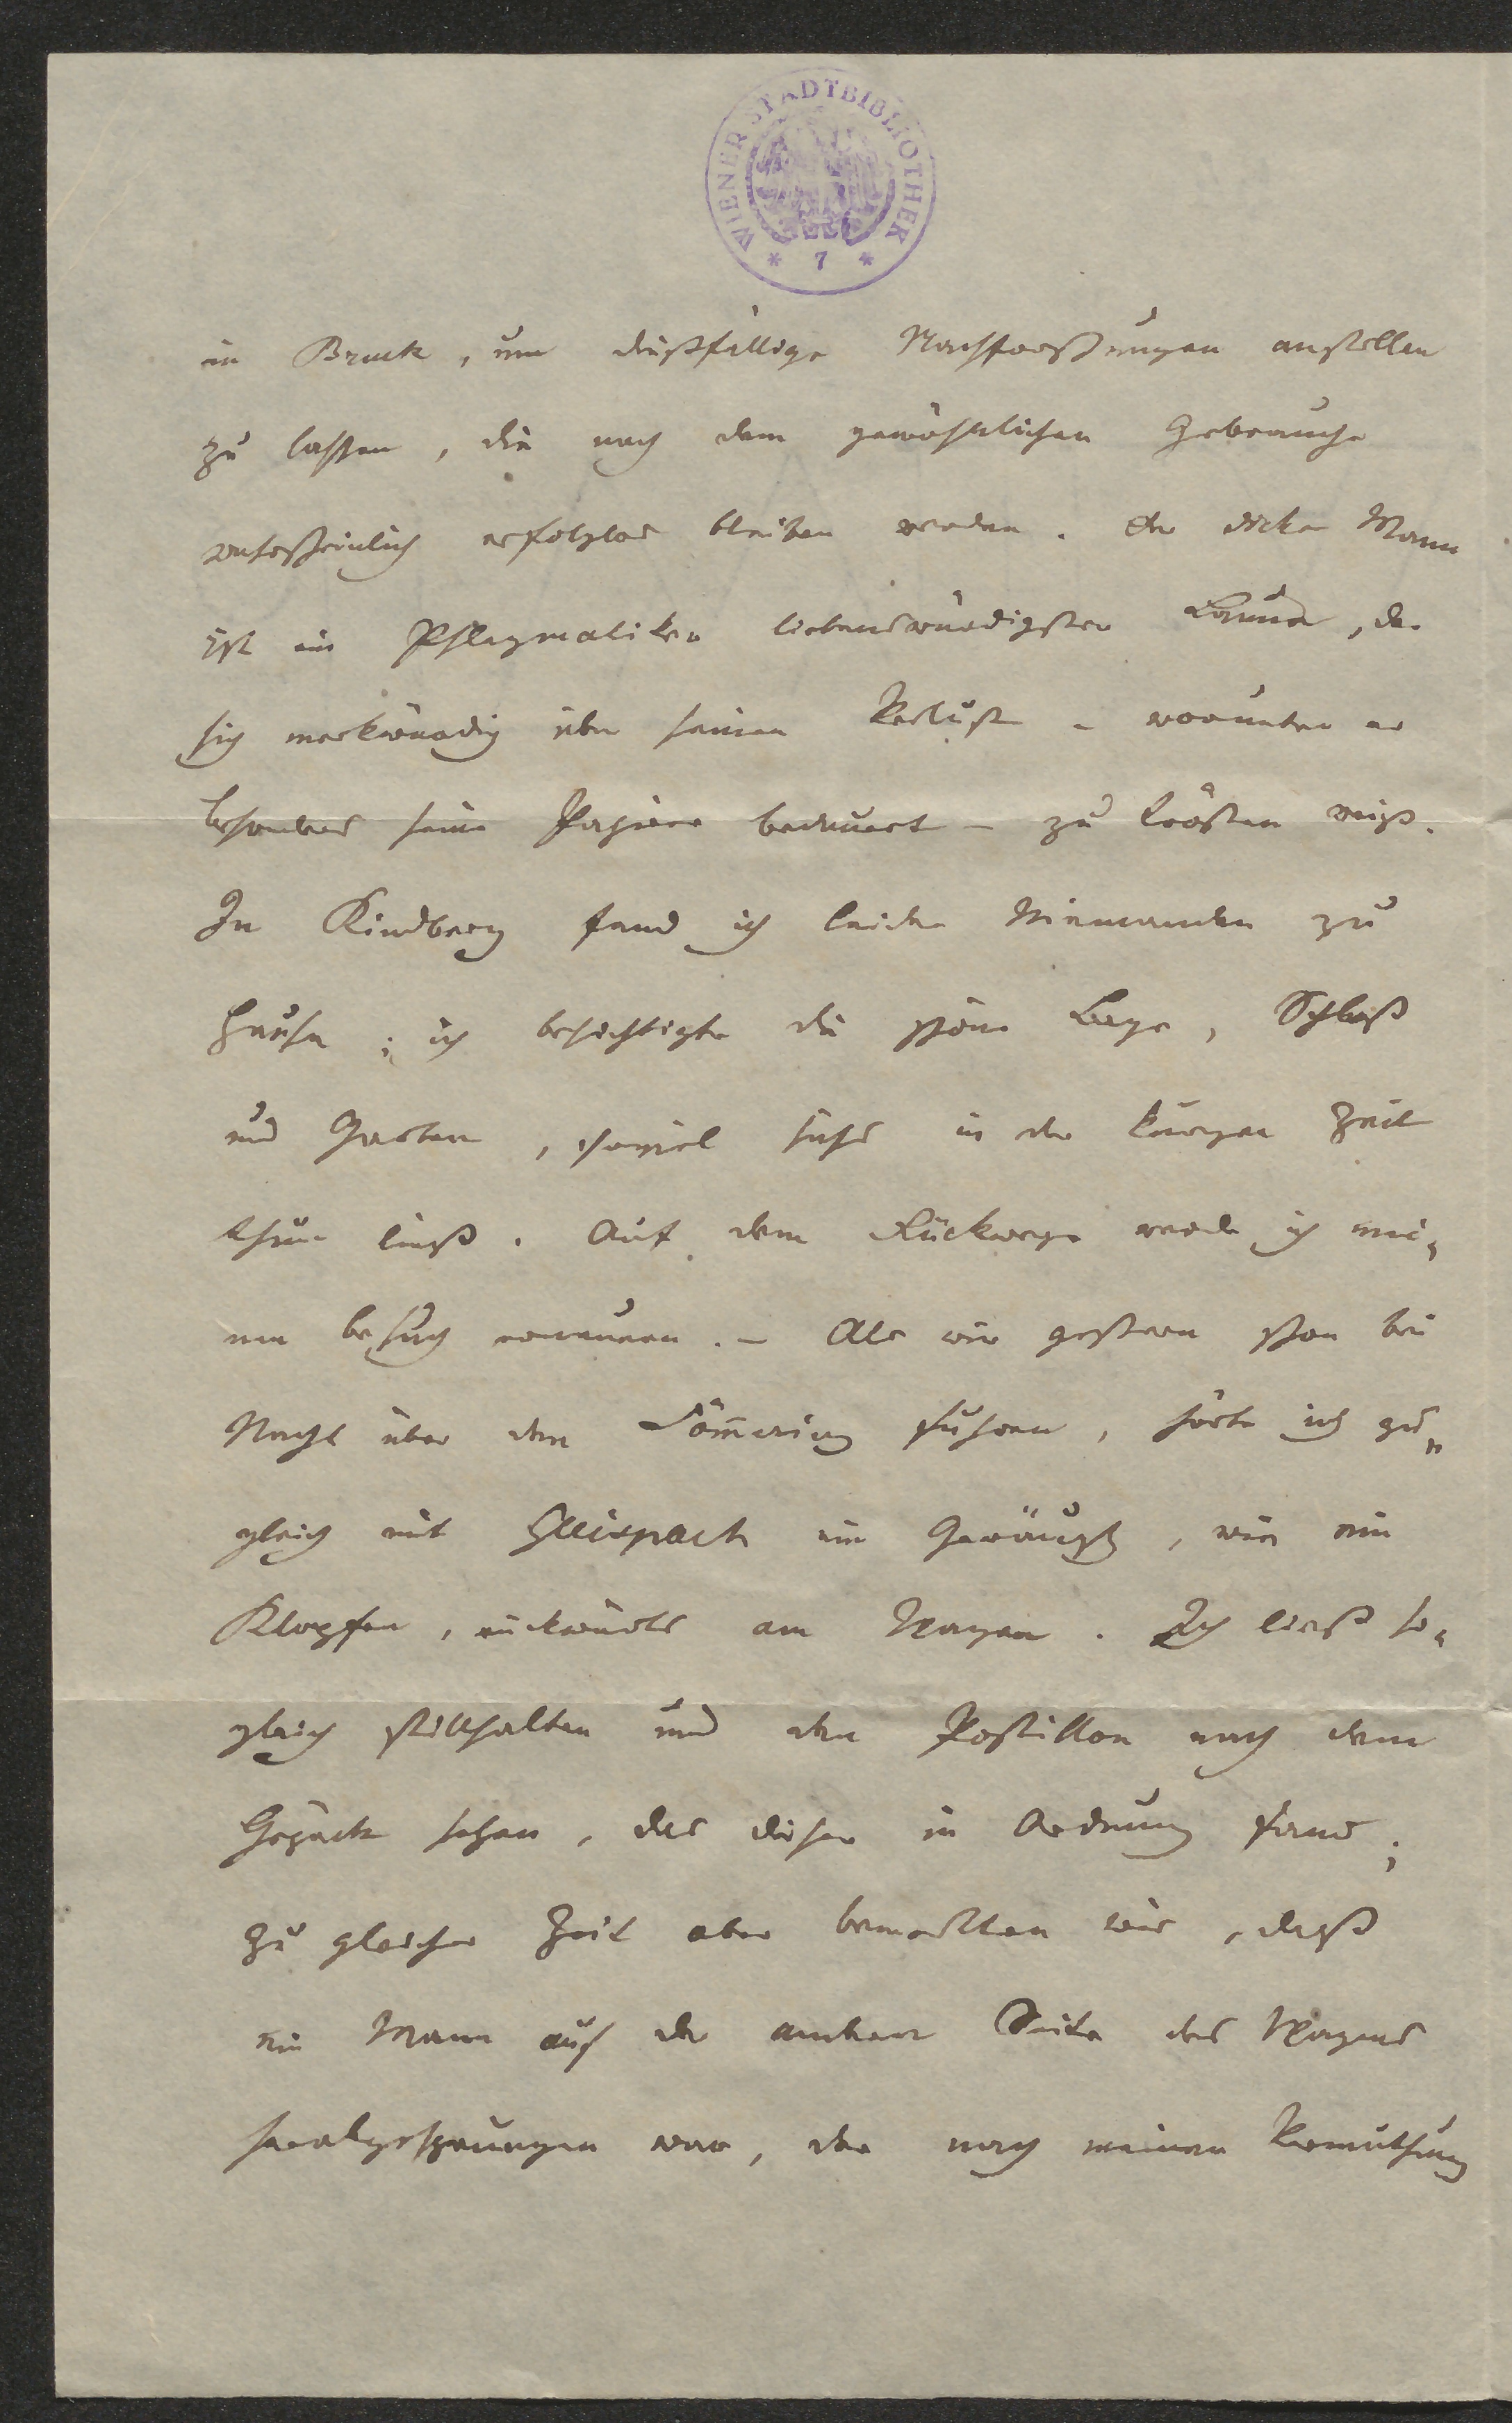 WIENER STADTBIBLIOTHEK
* 7 *
in Bruck, um dießfällige Nachforschungen anstellen
zu lassen, die nach dem gewöhnlichen Gebrauche
wahrscheinlich erfolglos bleiben werden. Der dicke Mann
ist ein Phlegmatiker liebenswürdigster Laune, der
sich merkwürdig über seinen Verlust – worunter er
besonders seine Papiere bedauert – zu trösten weiß.
In Kindberg fand ich leider Niemanden zu
Hause; ich besichtigte die schöne Lage, Schloß
und Garten, soviel sichs in der kurzen Zeit
thun ließ. Auf dem Rückwege werde ich mei-
nen Besuch erneuern. – Als wir gestern schon bei
Nacht über den Sömering fuhren, hörte ich zu-
gleich mit ein Geräusch, wie ein
Klopfen, rückwärts am Wagen. Ich ließ so-
gleich stillhalten und den Postillon nach dem
Gepäck sehen, das dieser in Ordnung fand;
zu gleicher Zeit aber bemerkten wir, daß
ein Mann auf der andern Seite des Wagens
herabgesprungen war, der nach meiner Vermuthung